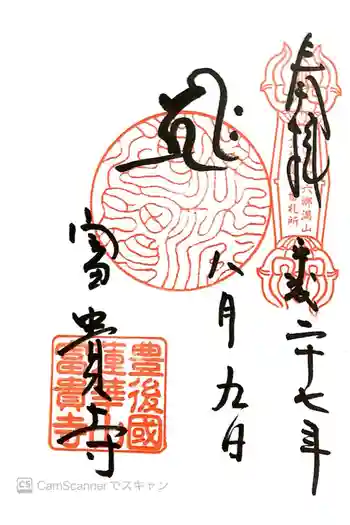 奉拝
平成二十七年
六郷満山
札所
八月九日
富貴寺
豊後國
蓮華山
富貴寺
CS CamScannerでスキャン